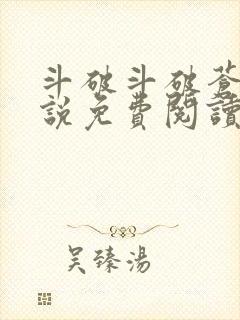 斗破斗破蒼
説免費閱讀
吴臻湯